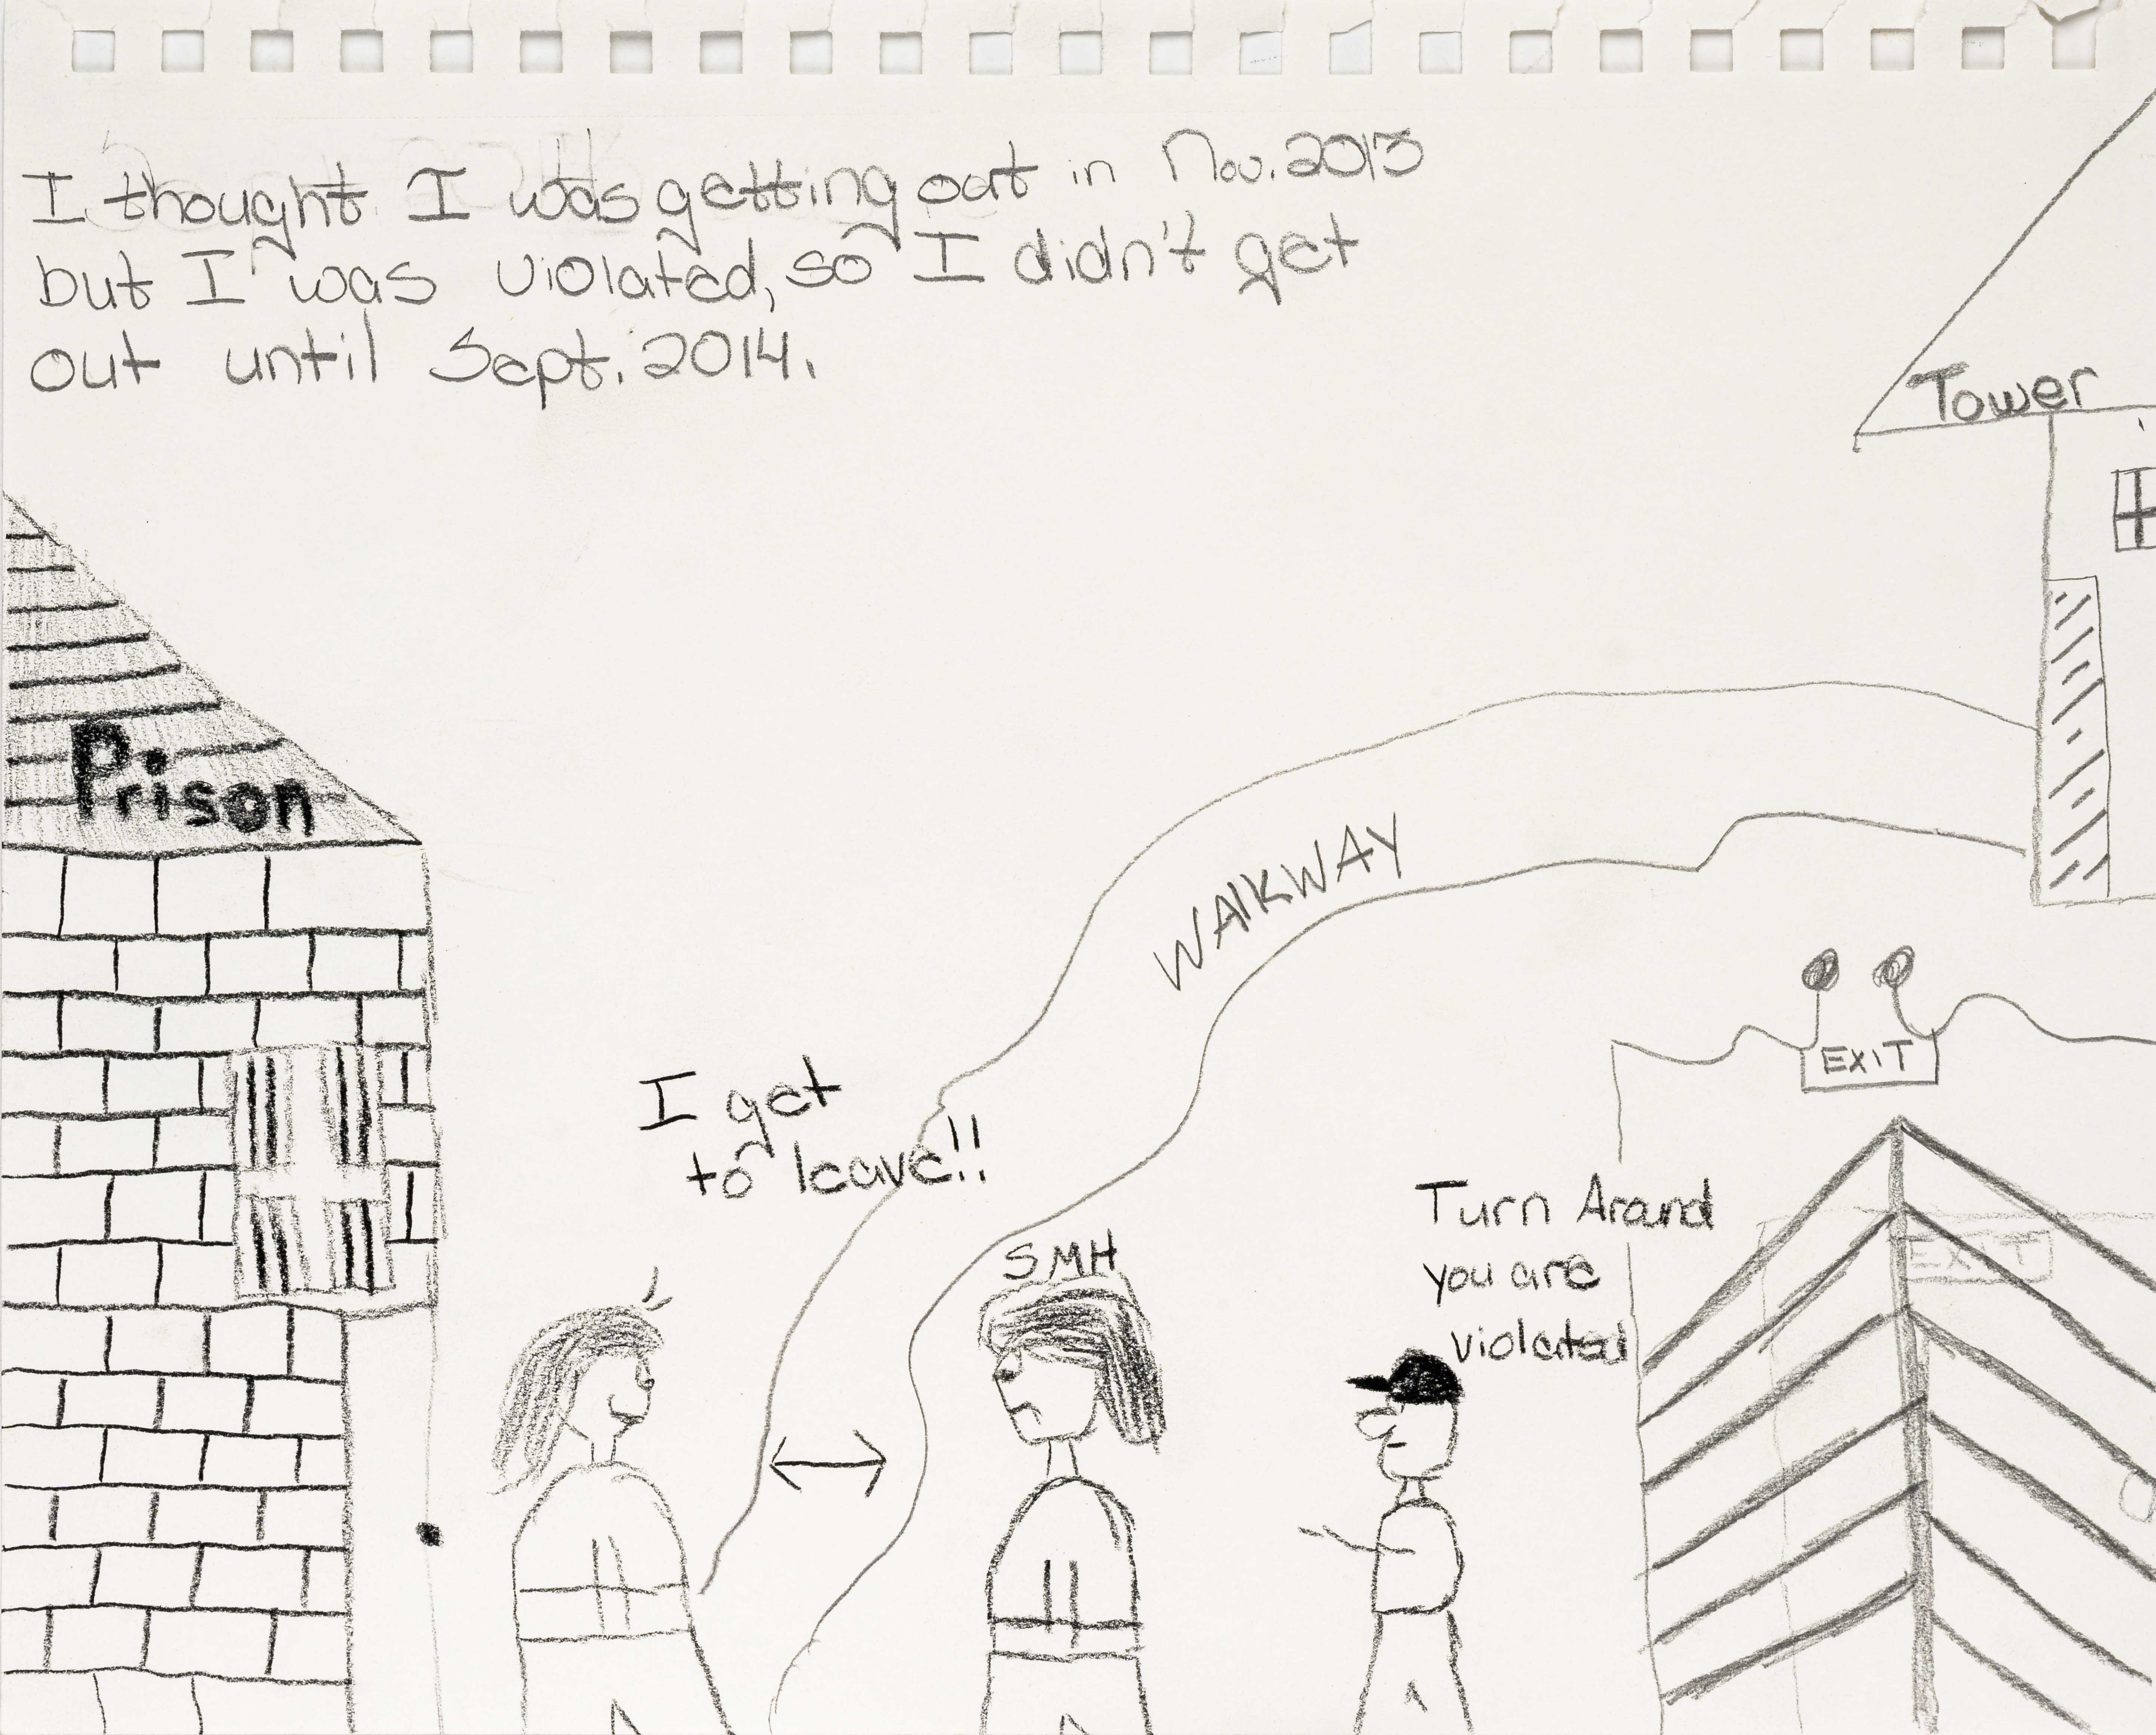 I thought I was getting out in Nov. 2013
but I was violated, so I didn't get
out until Sept. 2014.
Tower
Prison
WAlKWAY
EXIT
I get
to leave!!
Turn Around
you are
violated
SMH
EXIT